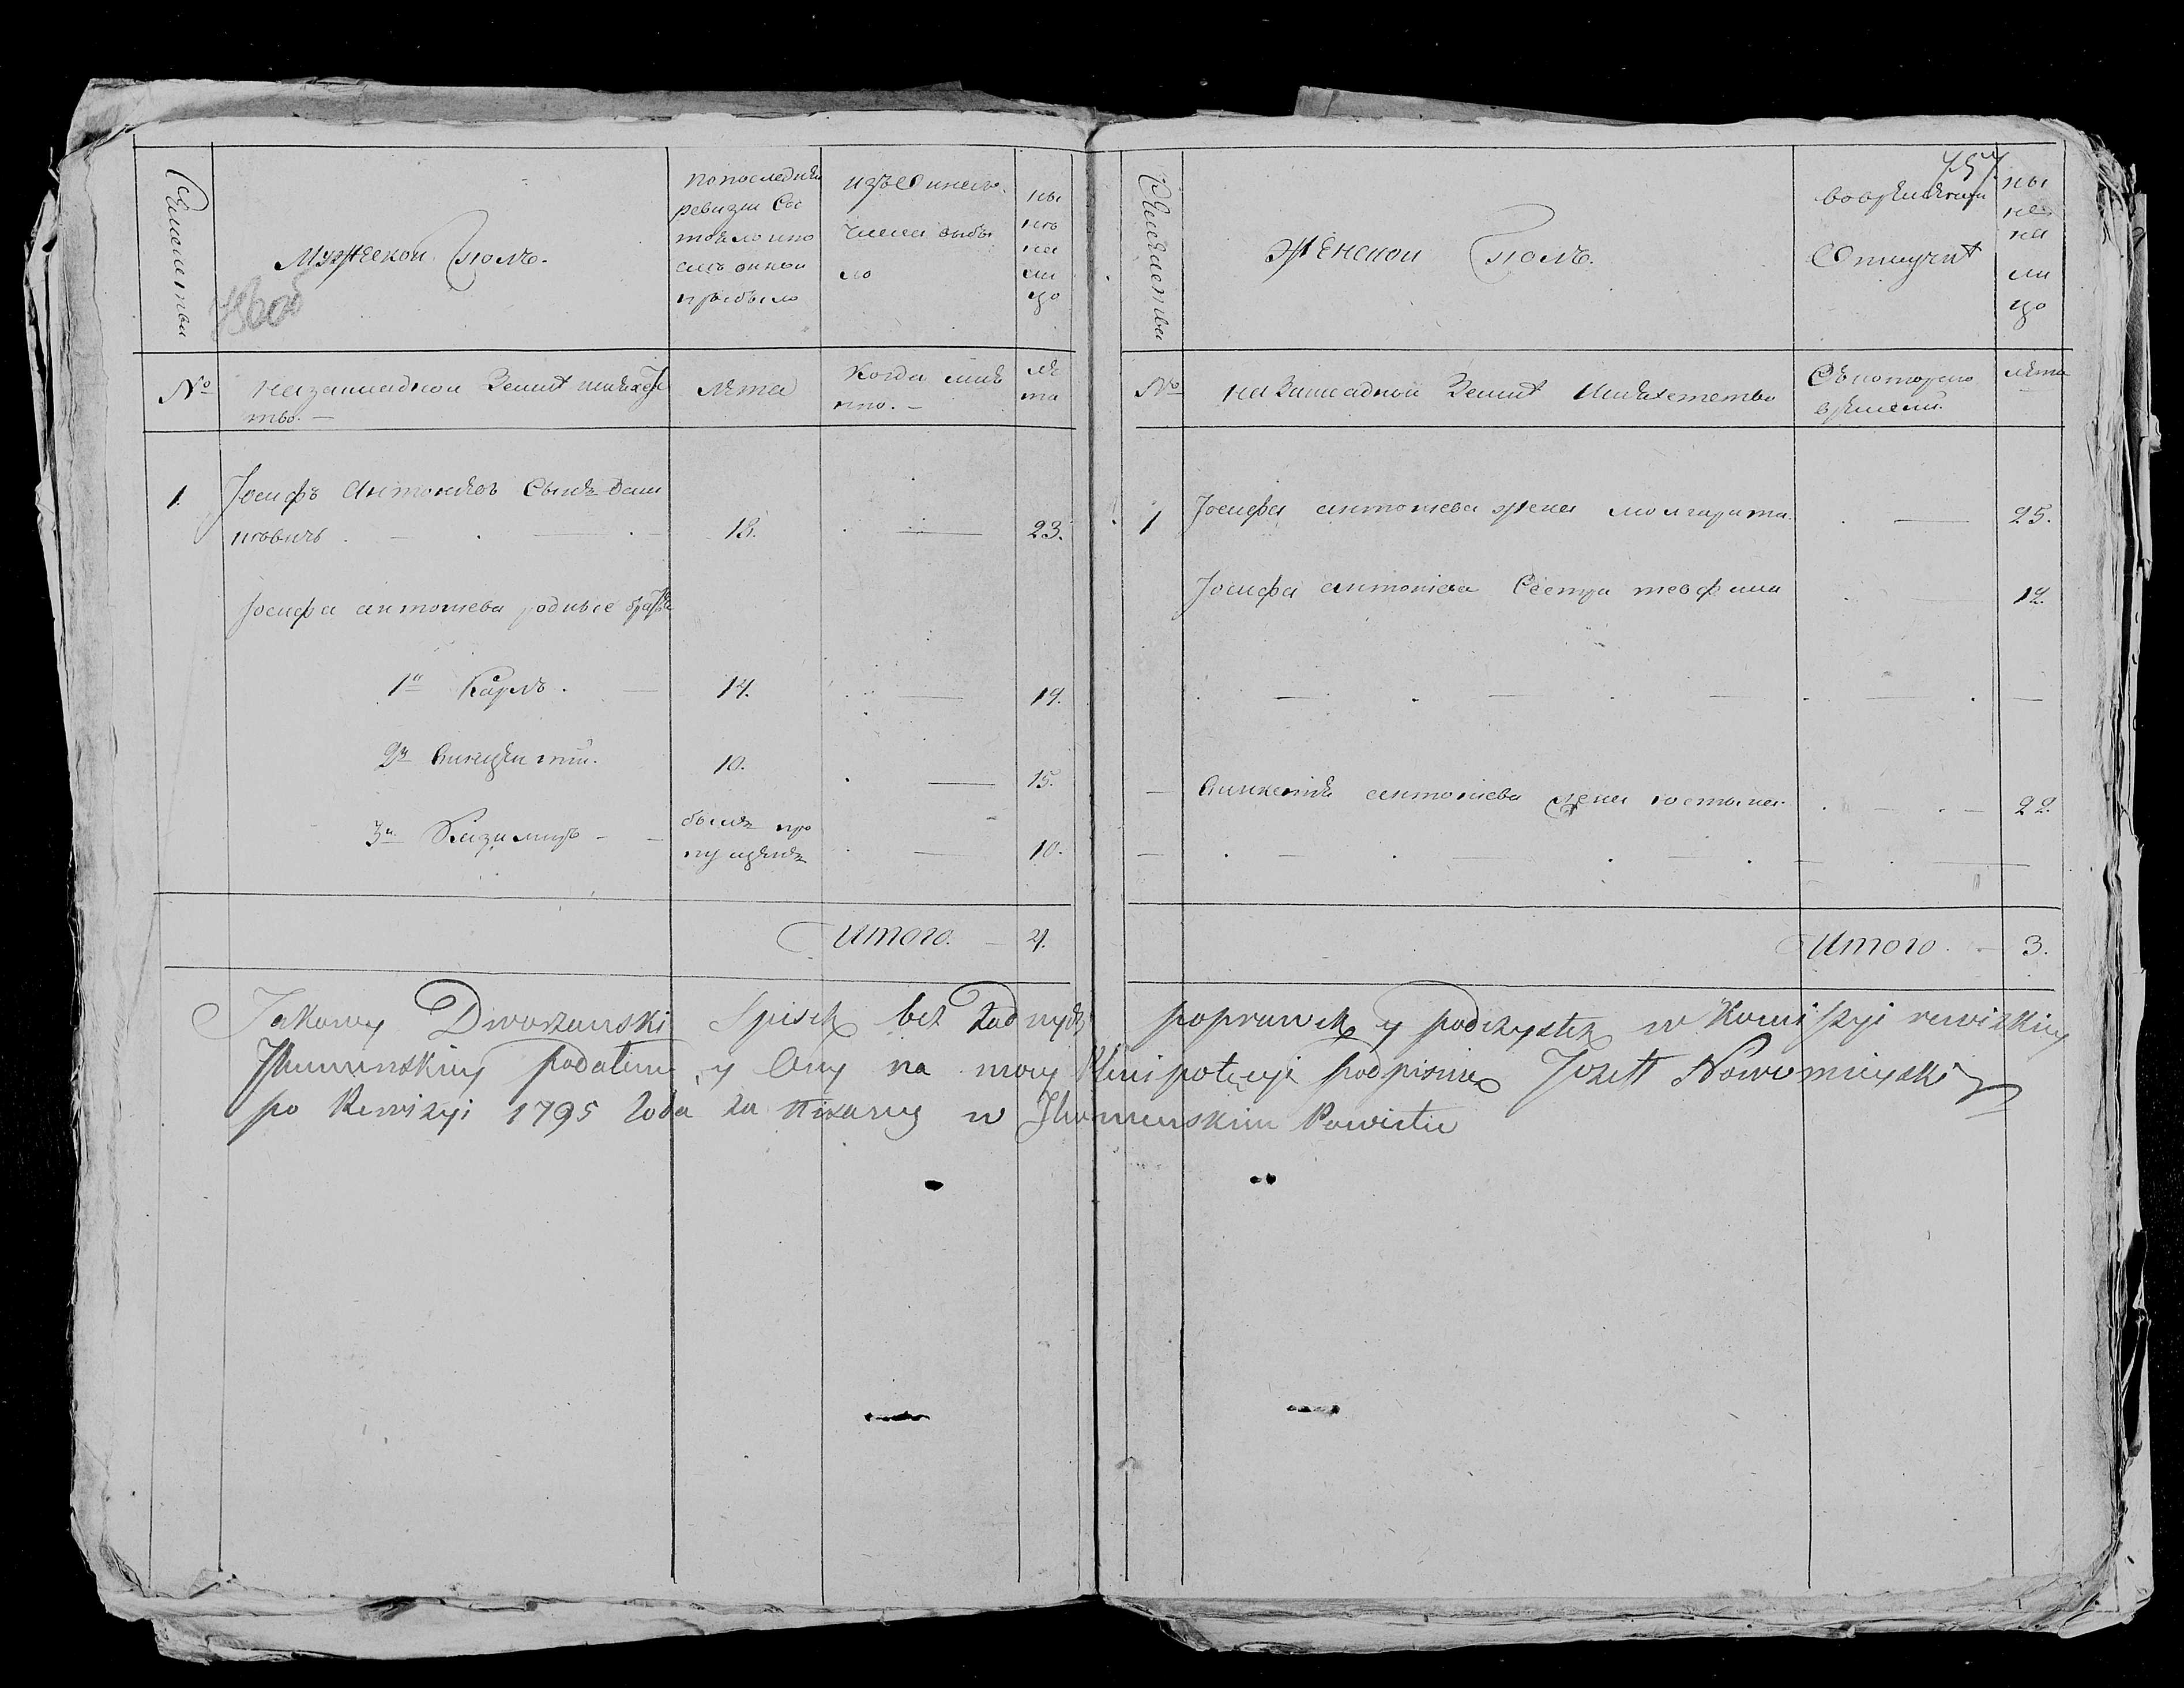 Семейства
Мужескои полъ.
по последнѣй
ревизіи сос
тояло ипо
слѣ оннои
прибыло
изъ онаго
числа выбы
ло
ны
нѣ
на
ли
цо
756об
№
на зашладнои Земли шляхет
тво. —
лѣта
Когда имѣ
нно. —
лѣ
та
1.
Іосифъ Антоніевъ Сынъ Дан
новичъ
18.
23.
Іосифа антоніева родные братья
1й Карлъ.
14.
19.
2й Викентій.
10.
15.
3й Казимиръ
былъ про
пущенъ
10.
Итого.
4.
757
Семейства
Женскои полъ.
во времѣннои
Отлучкѣ
ны
нѣ
на
ли
цо
№
на Зашладнои Земли Шляхетство
Съ котораго
времени.
лѣта
1
Іосифа антоніева жена Маргарита.
25.
Іосифа антоніева Сестра теофила
12.
Викентія антоніева жена костанца
22.
Итого.
3.
Takowy Dworzanski Spisek bez żadnych poprawek y podczystek w Komissyi rewizkiey
Jhumenskiey podalem y Ony na mocy Plenipotencyi podpisuie Jozeff Nowomieyski
po Rewizyi 1795 Roda za pisany w Jhumenskim Powiecie